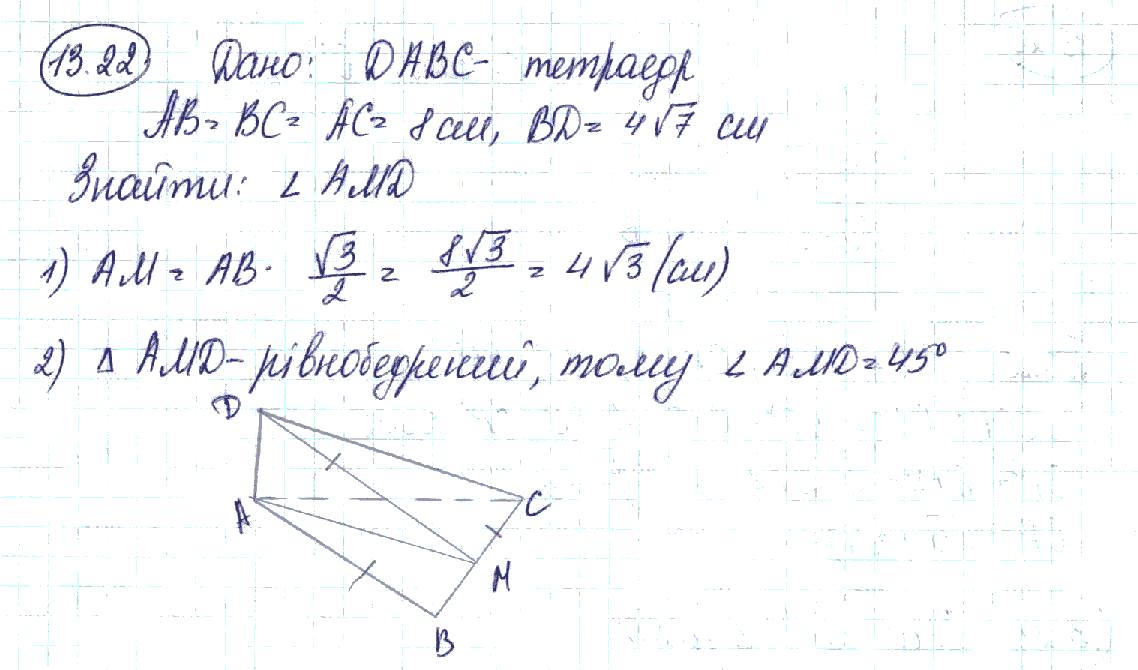 13.22 Дано: DABC- тетраедр
AB = BC = AC = 8 см, BD = 4√7 см
Знайти: ∠ AMD
1) AM = AB · √3/2 = 8√3/2 = 4√3 (см)
2) Δ AMD - рівнобедрений, тому ∠ AMD = 45°
D
A
C
M
B